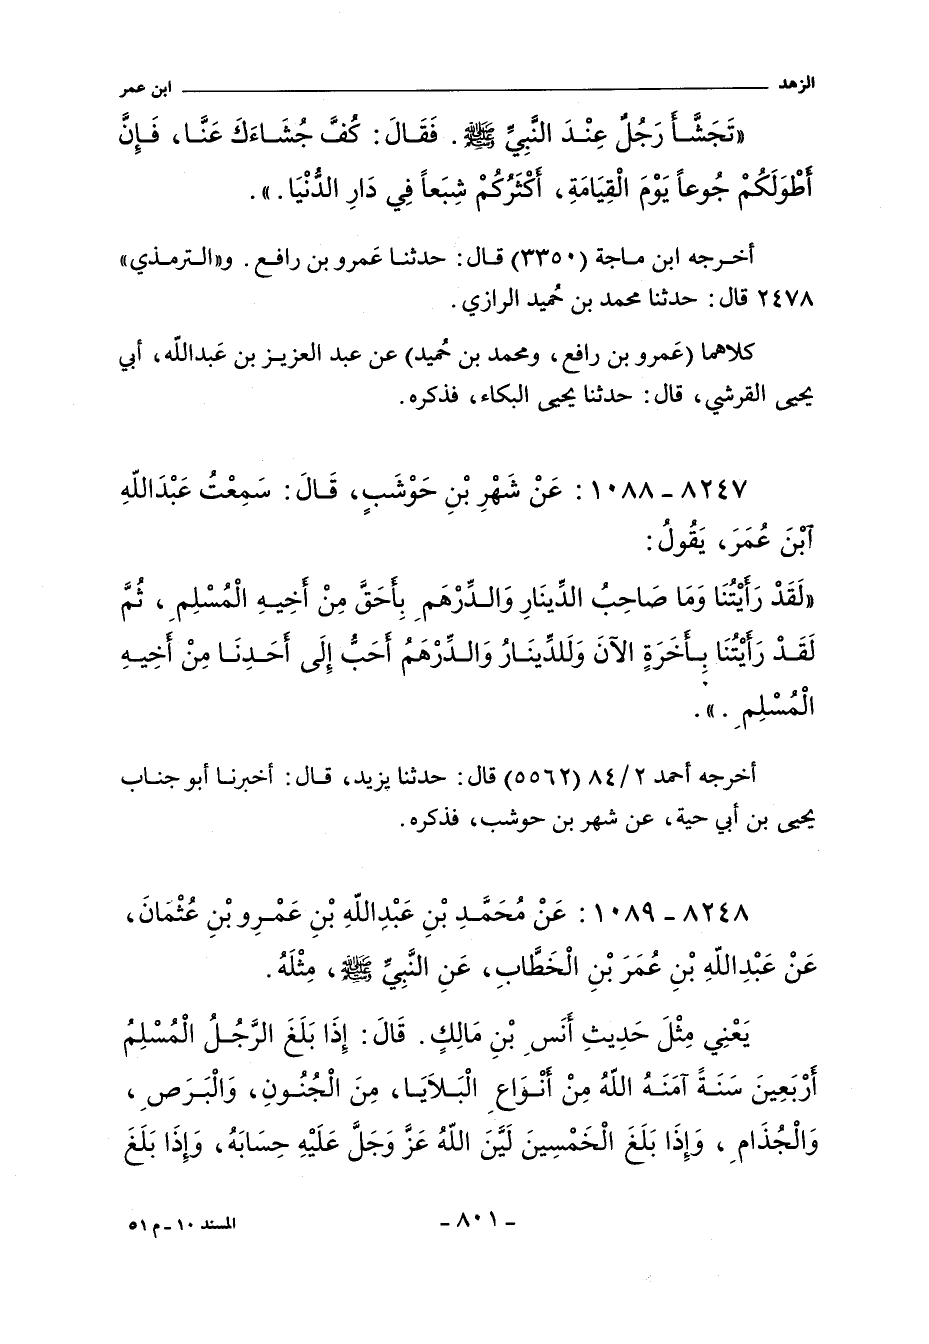 الزهد ـــــــــــــــــــــــــــــــــــــ ابن عمر
«تَجَشَّأَ رَجُلٌ عِنْدَ النَّبِيِّ ﷺ. فَقَالَ: كُفَّ جُشَاءَكَ عَنَّا، فَإِنَّ
أَطْوَلَكُمْ جُوعاً يَوْمَ الْقِيَامَةِ، أَكْثَرُكُمْ شِبَعاً فِي دَارِ الدُّنْيَا.».
أخرجه ابن ماجة (٣٣٥٠) قال: حدثنا عَمرو بن رافع. و«الترمذي»
٢٤٧٨ قال: حدثنا محمد بن حُميد الرازي.
كلاهما (عَمرو بن رافع، ومحمد بن حُميد) عن عبد العزيز بن عَبدالله، أبي
يحيى القرشي، قال: حدثنا يحيى البكاء، فذكره.
٨٢٤٧ - ١٠٨٨: عَنْ شَهْرِ بْنِ حَوْشَبٍ، قَالَ: سَمِعْتُ عَبْدَاللّهِ
آبْنَ عُمَرَ، يَقُولُ:
«لَقَدْ رَأَيْتُنَا وَمَا صَاحِبُ الدِّينَارِ وَالدِّرْهَمِ بِأَحَقَّ مِنْ أَخِيهِ الْمُسْلِمِ، ثُمَّ
لَقَدْ رَأَيْتُنَا بِأَخَرَةٍ الآنَ وَلَلدِّينَارُ وَالدِّرْهَمُ أَحَبُّ إِلَى أَحَدِنَا مِنْ أَخِيهِ
الْمُسْلِمِ.».
أخرجه أحمد ٨٤/٢ (٥٥٦٢) قال: حدثنا يزيد، قال: أخبرنا أبو جناب
يحيى بن أبي حية، عن شهر بن حوشب، فذكره.
٨٢٤٨ - ١٠٨٩: عَنْ مُحَمَّدِ بْنِ عَبْدِاللّهِ بْنِ عَمْرِو بْنِ عُثْمَانَ،
عَنْ عَبْدِاللّهِ بْنِ عُمَرَ بْنِ الْخَطَّابِ، عَنِ النَّبِيِّ ﷺ، مِثْلَهُ.
يَعْنِي مِثْلَ حَدِيثِ أَنَسِ بْنِ مَالِكٍ. قَالَ: إِذَا بَلَغَ الرَّجُلُ الْمُسْلِمُ
أَرْبَعِينَ سَنَةً آمَنَهُ اللّهُ مِنْ أَنْوَاعِ الْبَلاَيَا، مِنَ الْجُنُونِ، وَالْبَرَصِ،
وَالْجُذَامِ، وَإِذَا بَلَغَ الْخَمْسِينَ لَيَّنَ اللّهُ عَزَّ وَجَلَّ عَلَيْهِ حِسَابَهُ، وَإِذَا بَلَغَ
- ٨٠١ -
المسند ١٠ - م ٥١